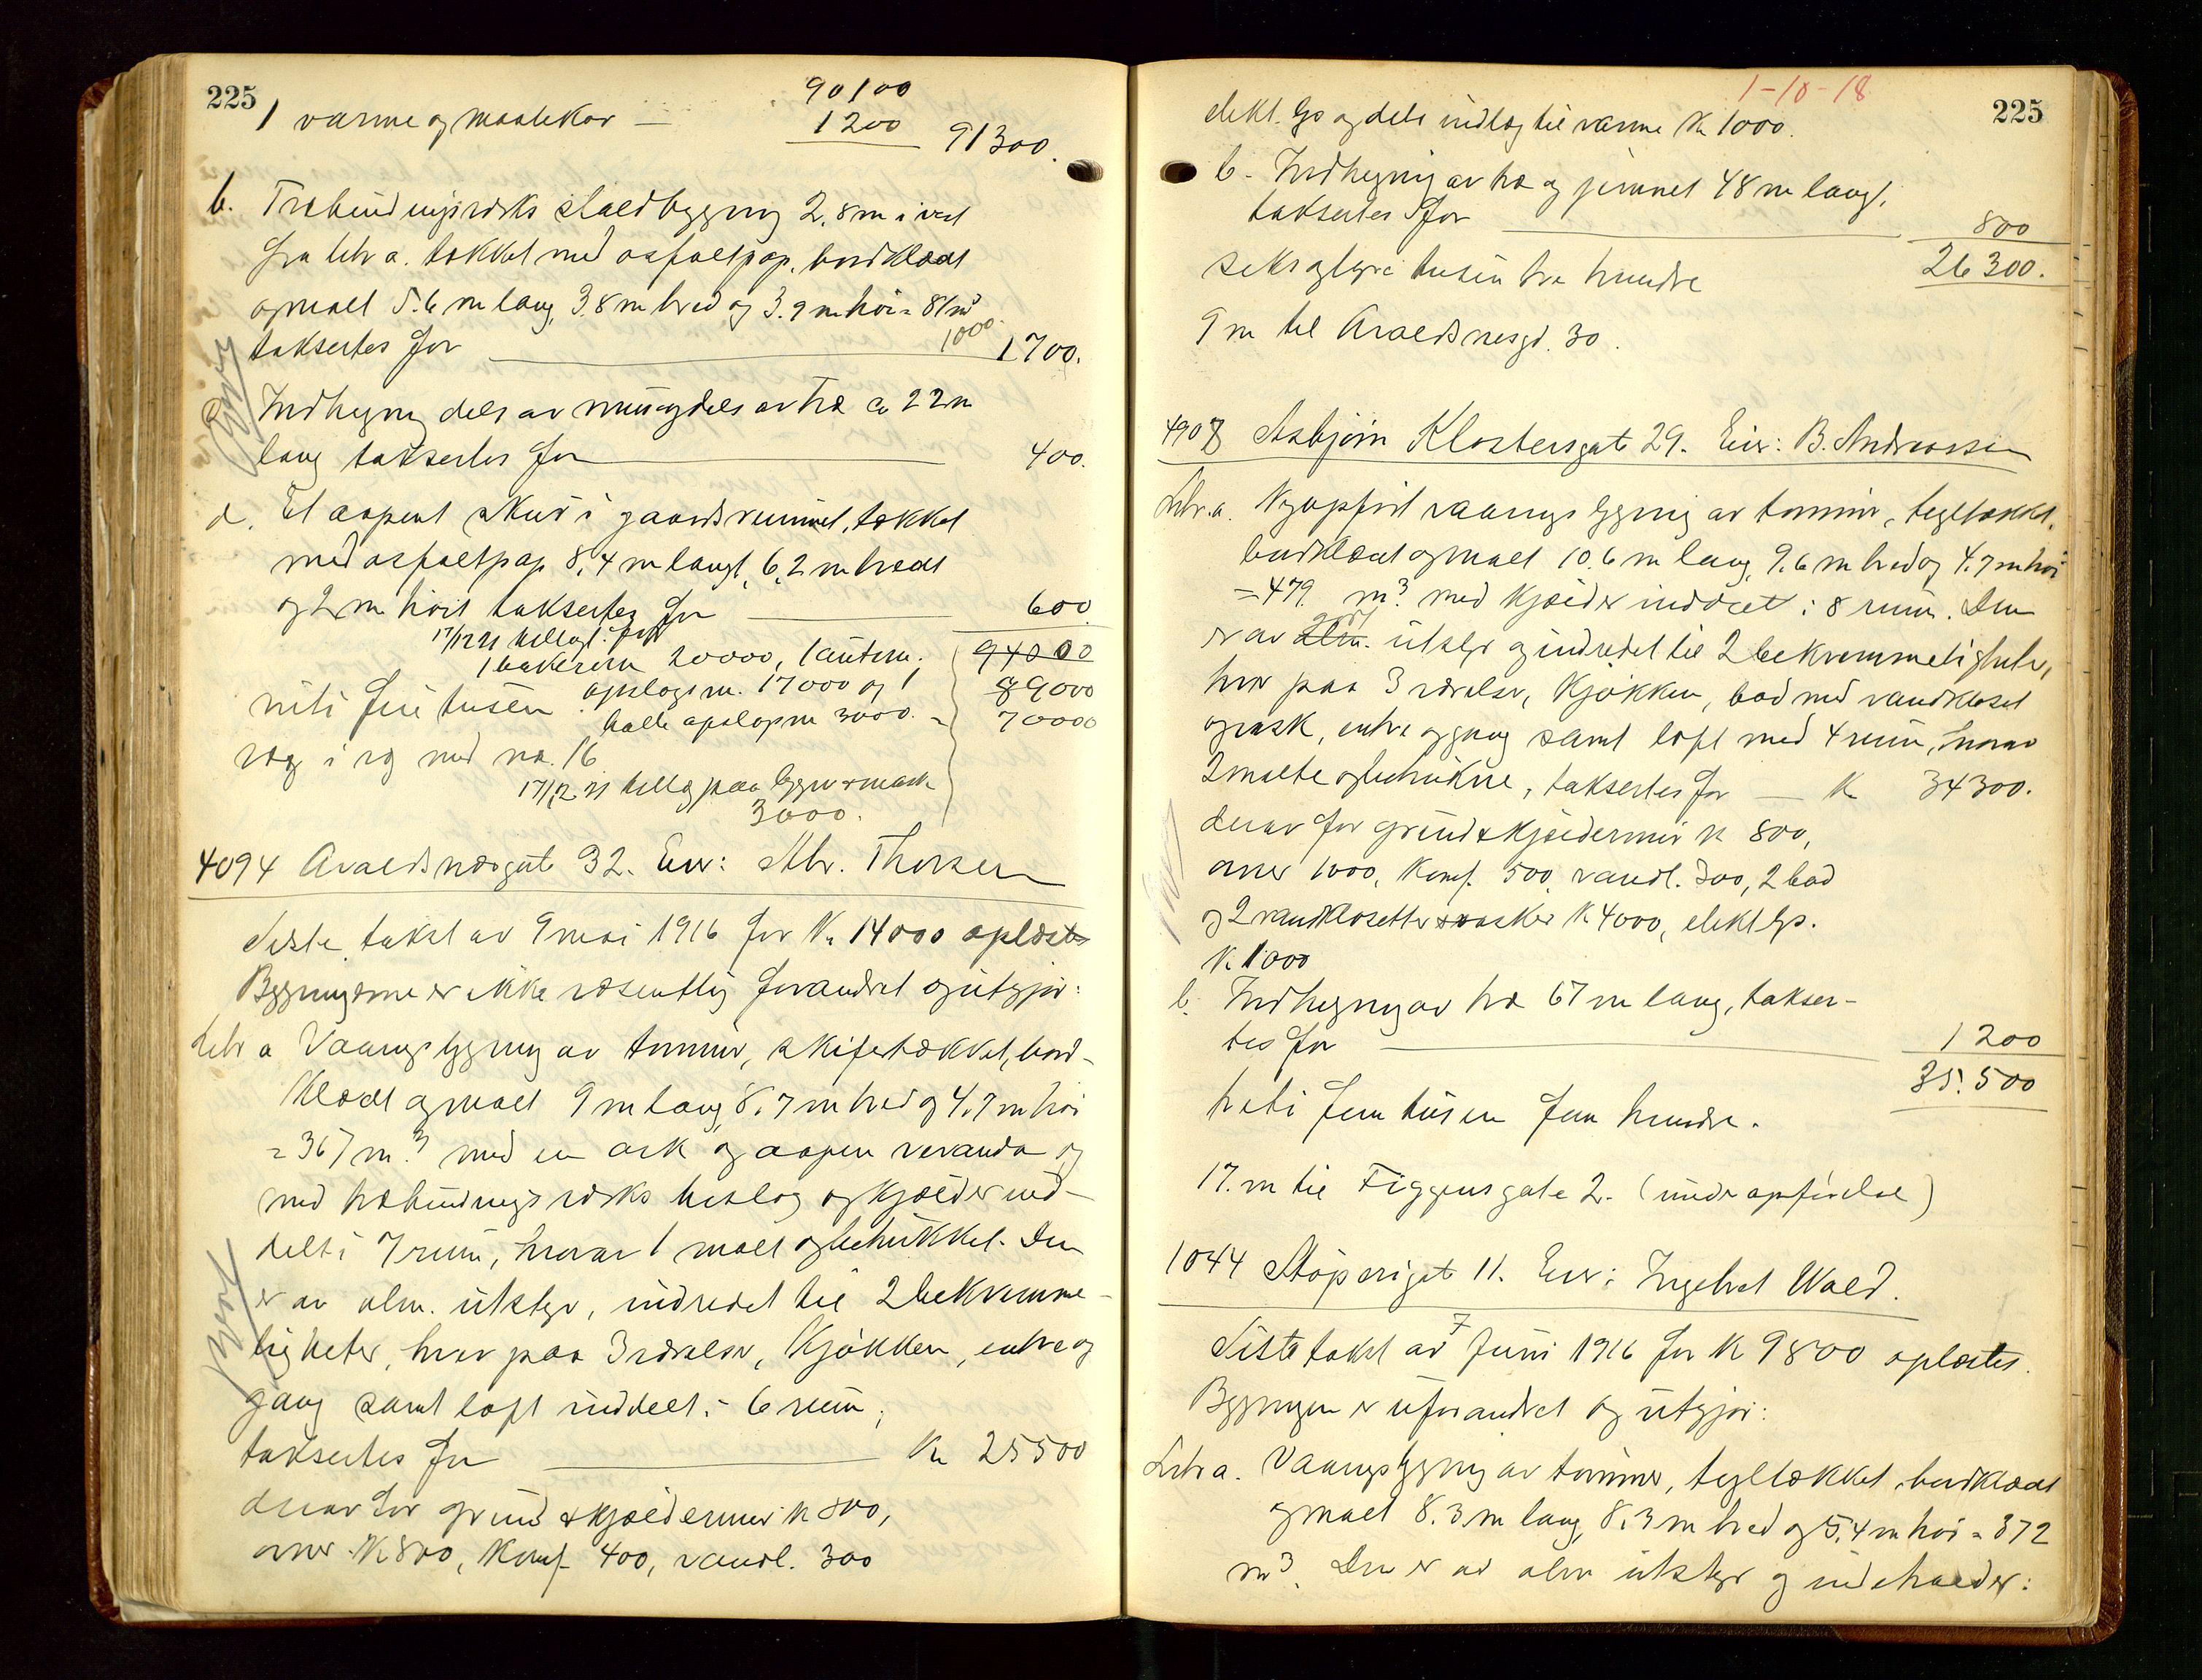 225
90100
1 varme og maalekar — 1200 91300.
b. Træbindingsverks staldbygning 2,8 m i vest
fra litr a. tækket med asfaltpap, bordklædt
og malt 5.6 m lang, 3.8 m bred og 3.9 m høi = 81 m³
1000.
taksertes for 1700.
Indhegning dels av mur og dels av træ ca 22 m
lang taksertes for 400.
d. Et aapent skur i gaardsrummet, tækket
med asfaltpap 8,4 m langt, 6,2 m bredt
og 2 m høit taksertes for 600
17/12 21 tillegg. for
1 bakerovn 20000, 1 autom. 94000
opslagsm. 17000 og 1 89000
niti fire tusen
halle opslagsm 3000. = 70000
væg i væg med no. 16
17/12 21 tillegg paa bygn & mask
3000.
4094 Avaldsnesgate 32. Eier: Abr. Thorsen
Siste takst av 9 mai 1916 for Kr 14000 oplæstes
Bygningerne er ikke væsentlig forandret og utgjør:
Litr a Vaaningsbygning av tømmer, skifertækket, bord-
klædt og malt 9 m lang, 8,7 m bred og 4,7 m høi
= 367 m³ med en ark og aapen veranda og
med træbindingsverks bislag og kjælder ind-
delt i 7 rum, hvorav 1 malt og betrukket. Den
er av alm. utstyr, indredet til 2 bekvemme-
ligheter, hver paa 3 værelser, kjøkken, entre og
gang samt loft inddelt i 6 rum,
taksertes for Kr 25500
derav for grund & kjældermur kr 800,
ovner Kr 800, komf. 400, vandl. 300
1-10-18
225
elekt. lys og dels indlag til varme Kr 1000.
b. Indhegning av træ og jernnet 48 m langt,
taksertes for 800
seks og tyve tusen tre hundre 26300.
9 m til Avaldsnesgt. 30.
4908 Asbjørn Klostersgate 29. Eier: B. Andreassen
Litr. a. Nyopført vaaningsbygning av tømmer, tegltækket,
bordklædt og malt 10.6 m lang, 9.6 m bred og 4.7 m høi
= 479 m³ med kjælder inddelt i 8 rum. Den
er av godt alm. utstyr og indredet til 2 bekvemmeligheter,
hver paa 3 værelser, kjøkken, bad med vandkloset
og vask, entre og gang samt loft med 4 rum, hvorav
2 malte og betrukne, taksertes for — Kr 34300.
derav for grund & kjældermur kr 800,
ovner 1000, komf. 500, vandl. 300, 2 bad
og 2 vandklosetter & vasker Kr 4000, elekt lys.
Kr 1000
b. Indhegning av træ 67 m lang, takser-
tes for 1200
35.500
treti fem tusen fem hundre.
17. m til Figgensgate 2. (under opførelse)
1044 Støperigt 11. Eier: Ingebret Wold.
Siste takst av 7 Juni 1916 for Kr 9800 oplæstes.
Bygningen er uforandret og utgjør:
Litr a. Vaaningsbygning av tømmer, tegltækket, bordklædt
og malt 8.3 m lang, 8.3 m bred og 5,4 m høi = 372
m³. Den er av alm utstyr og indeholder: